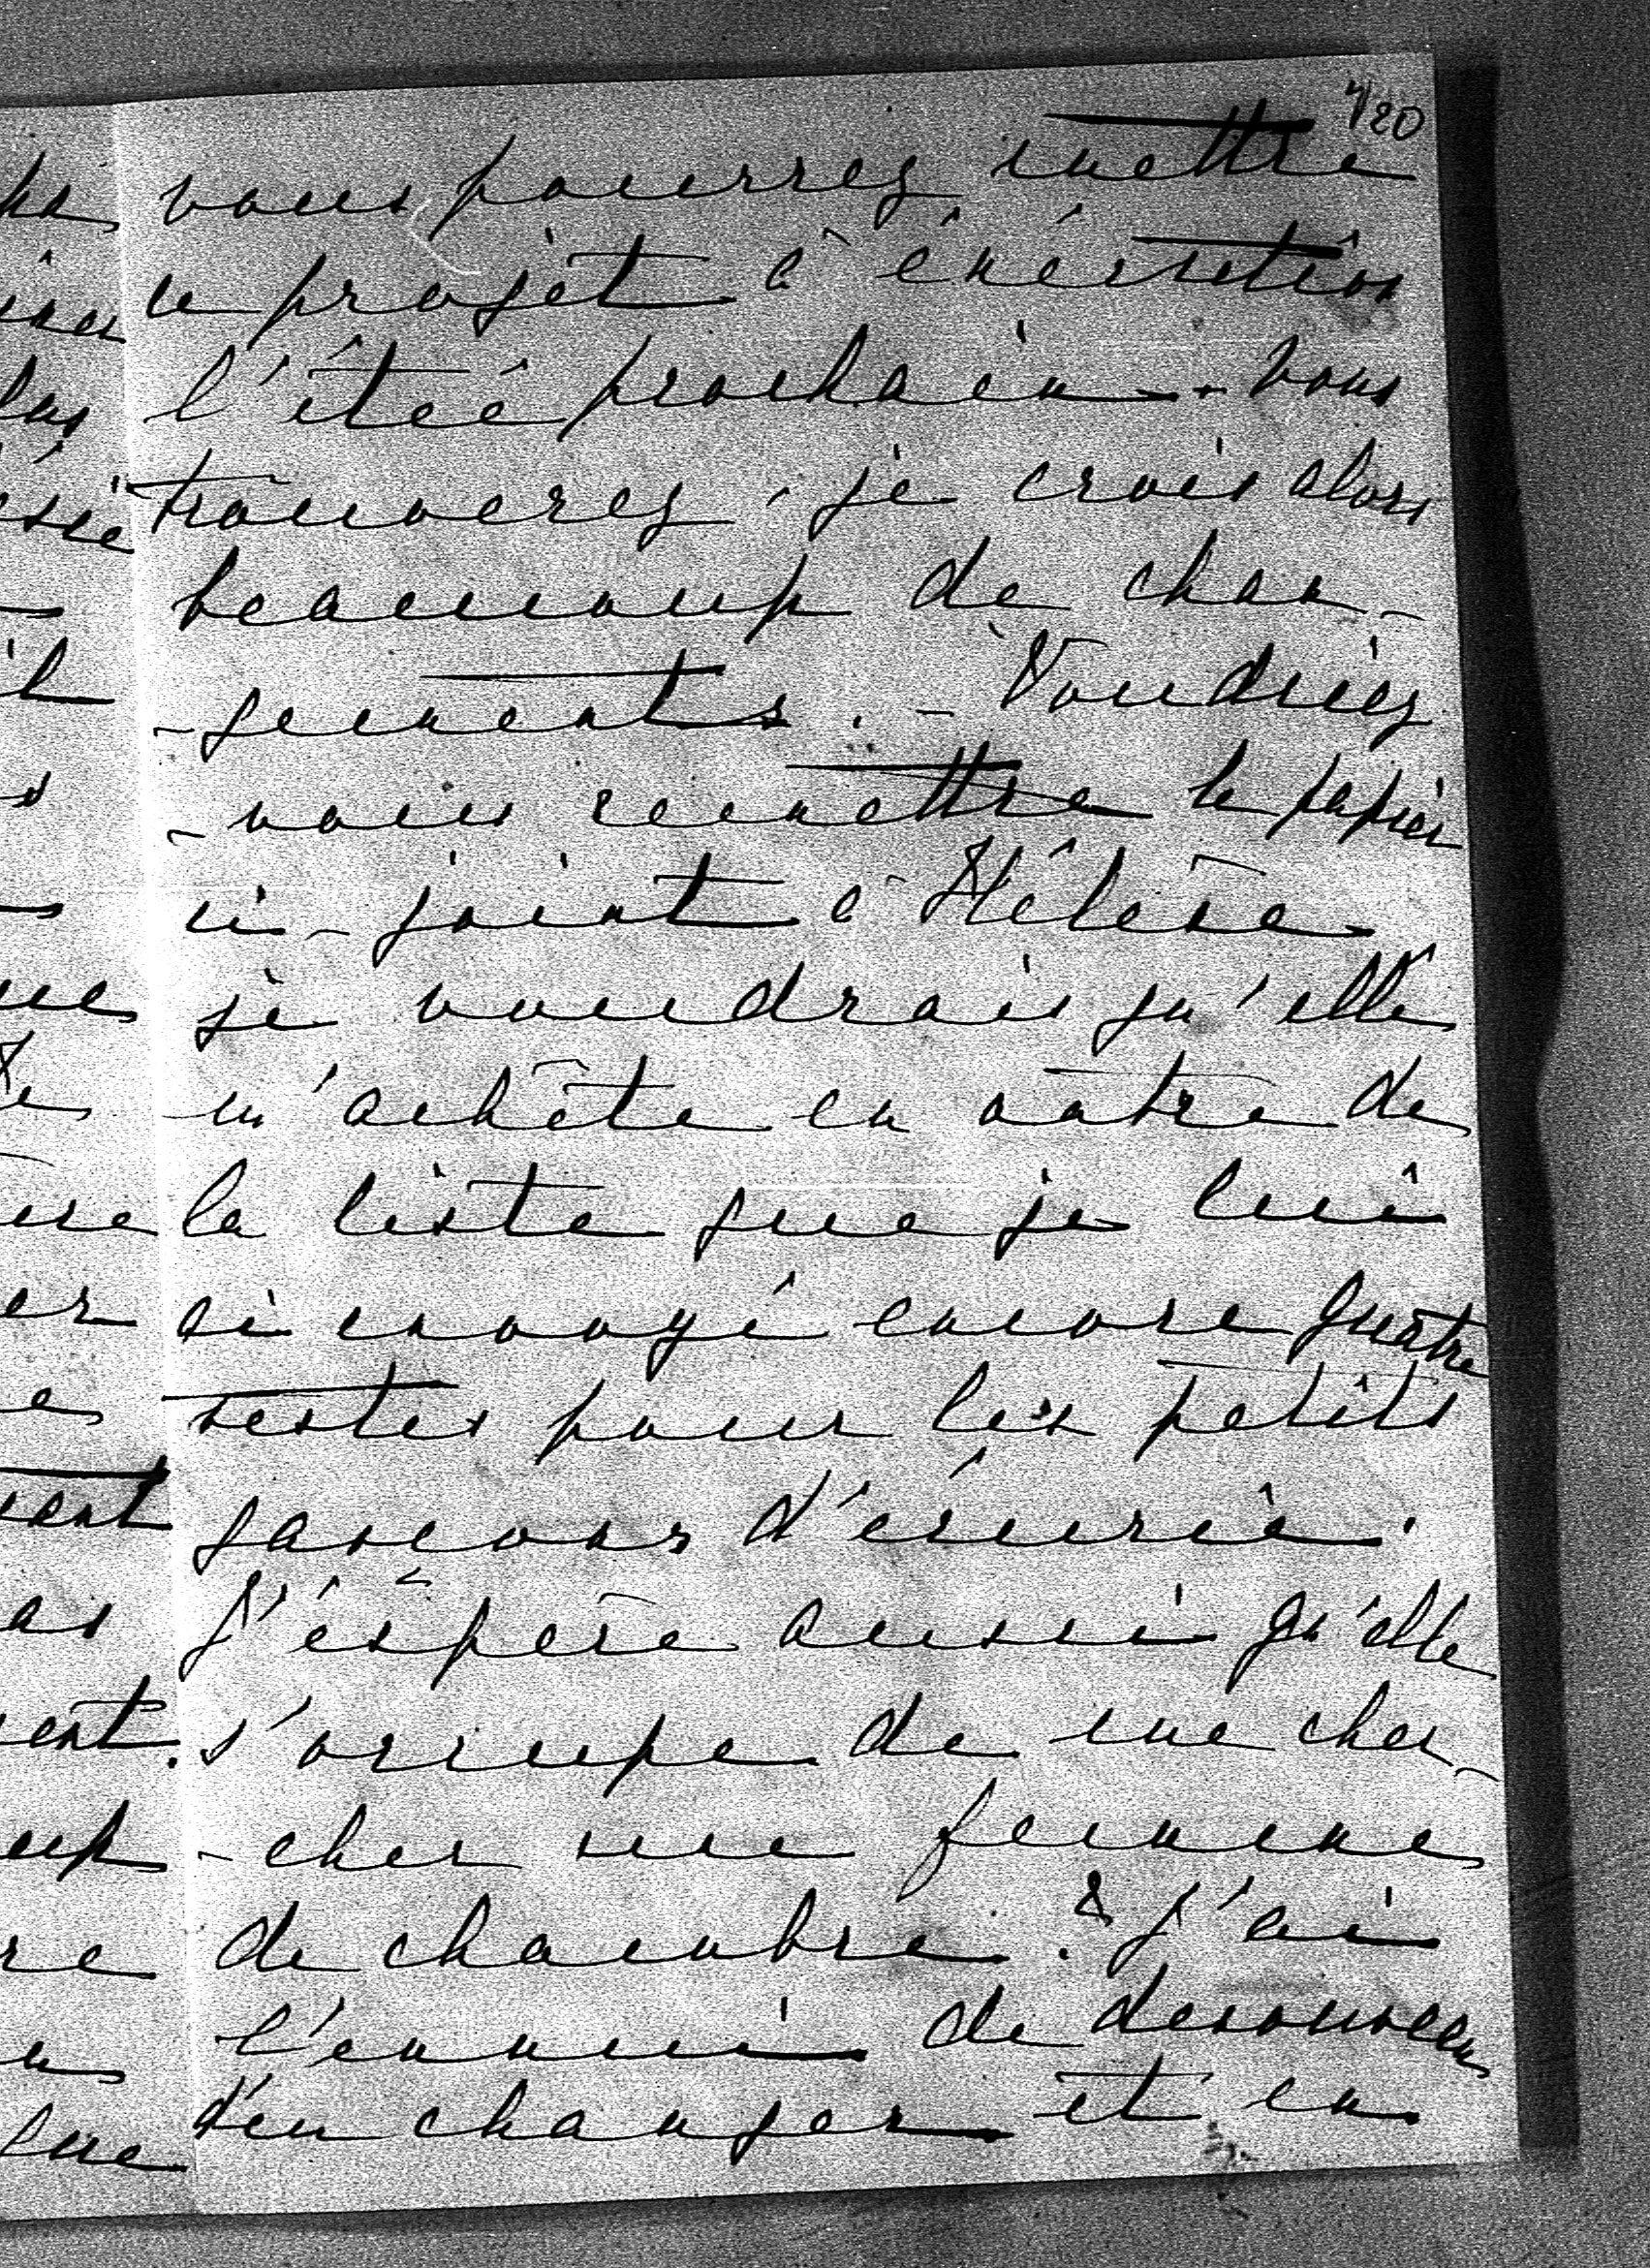 7/20
vous pourrez mettre
ce projet à éxécution
l'été prochain – Vous
trouverez je crois alors
beaucoup de chan-
-gements. – Voudriez
-vous remettre le papier
ci-joint à Hélène
je voudrais qu'elle
m'achète en outre de
la liste que je lui
ai envoyé encore quatre
vestes pour les petits
garçons d'écurie.
J'éspère aussi qu'elle
s'occupe de me cher-
-cher une femme
de chambre? J'ai
l'ennui de denouveau
d'en changer et en